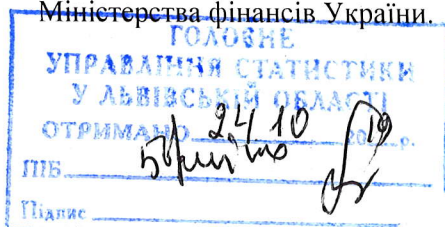 Міністерства фінансів України.
ГОЛОВНЕ
УПРАВЛІННЯ СТАТИСТИКИ
У ЛЬВІВСЬКІЙ ОБЛАСТІ
ОТРИМАНО 24 10 20 р.
ПІБ
Підпис